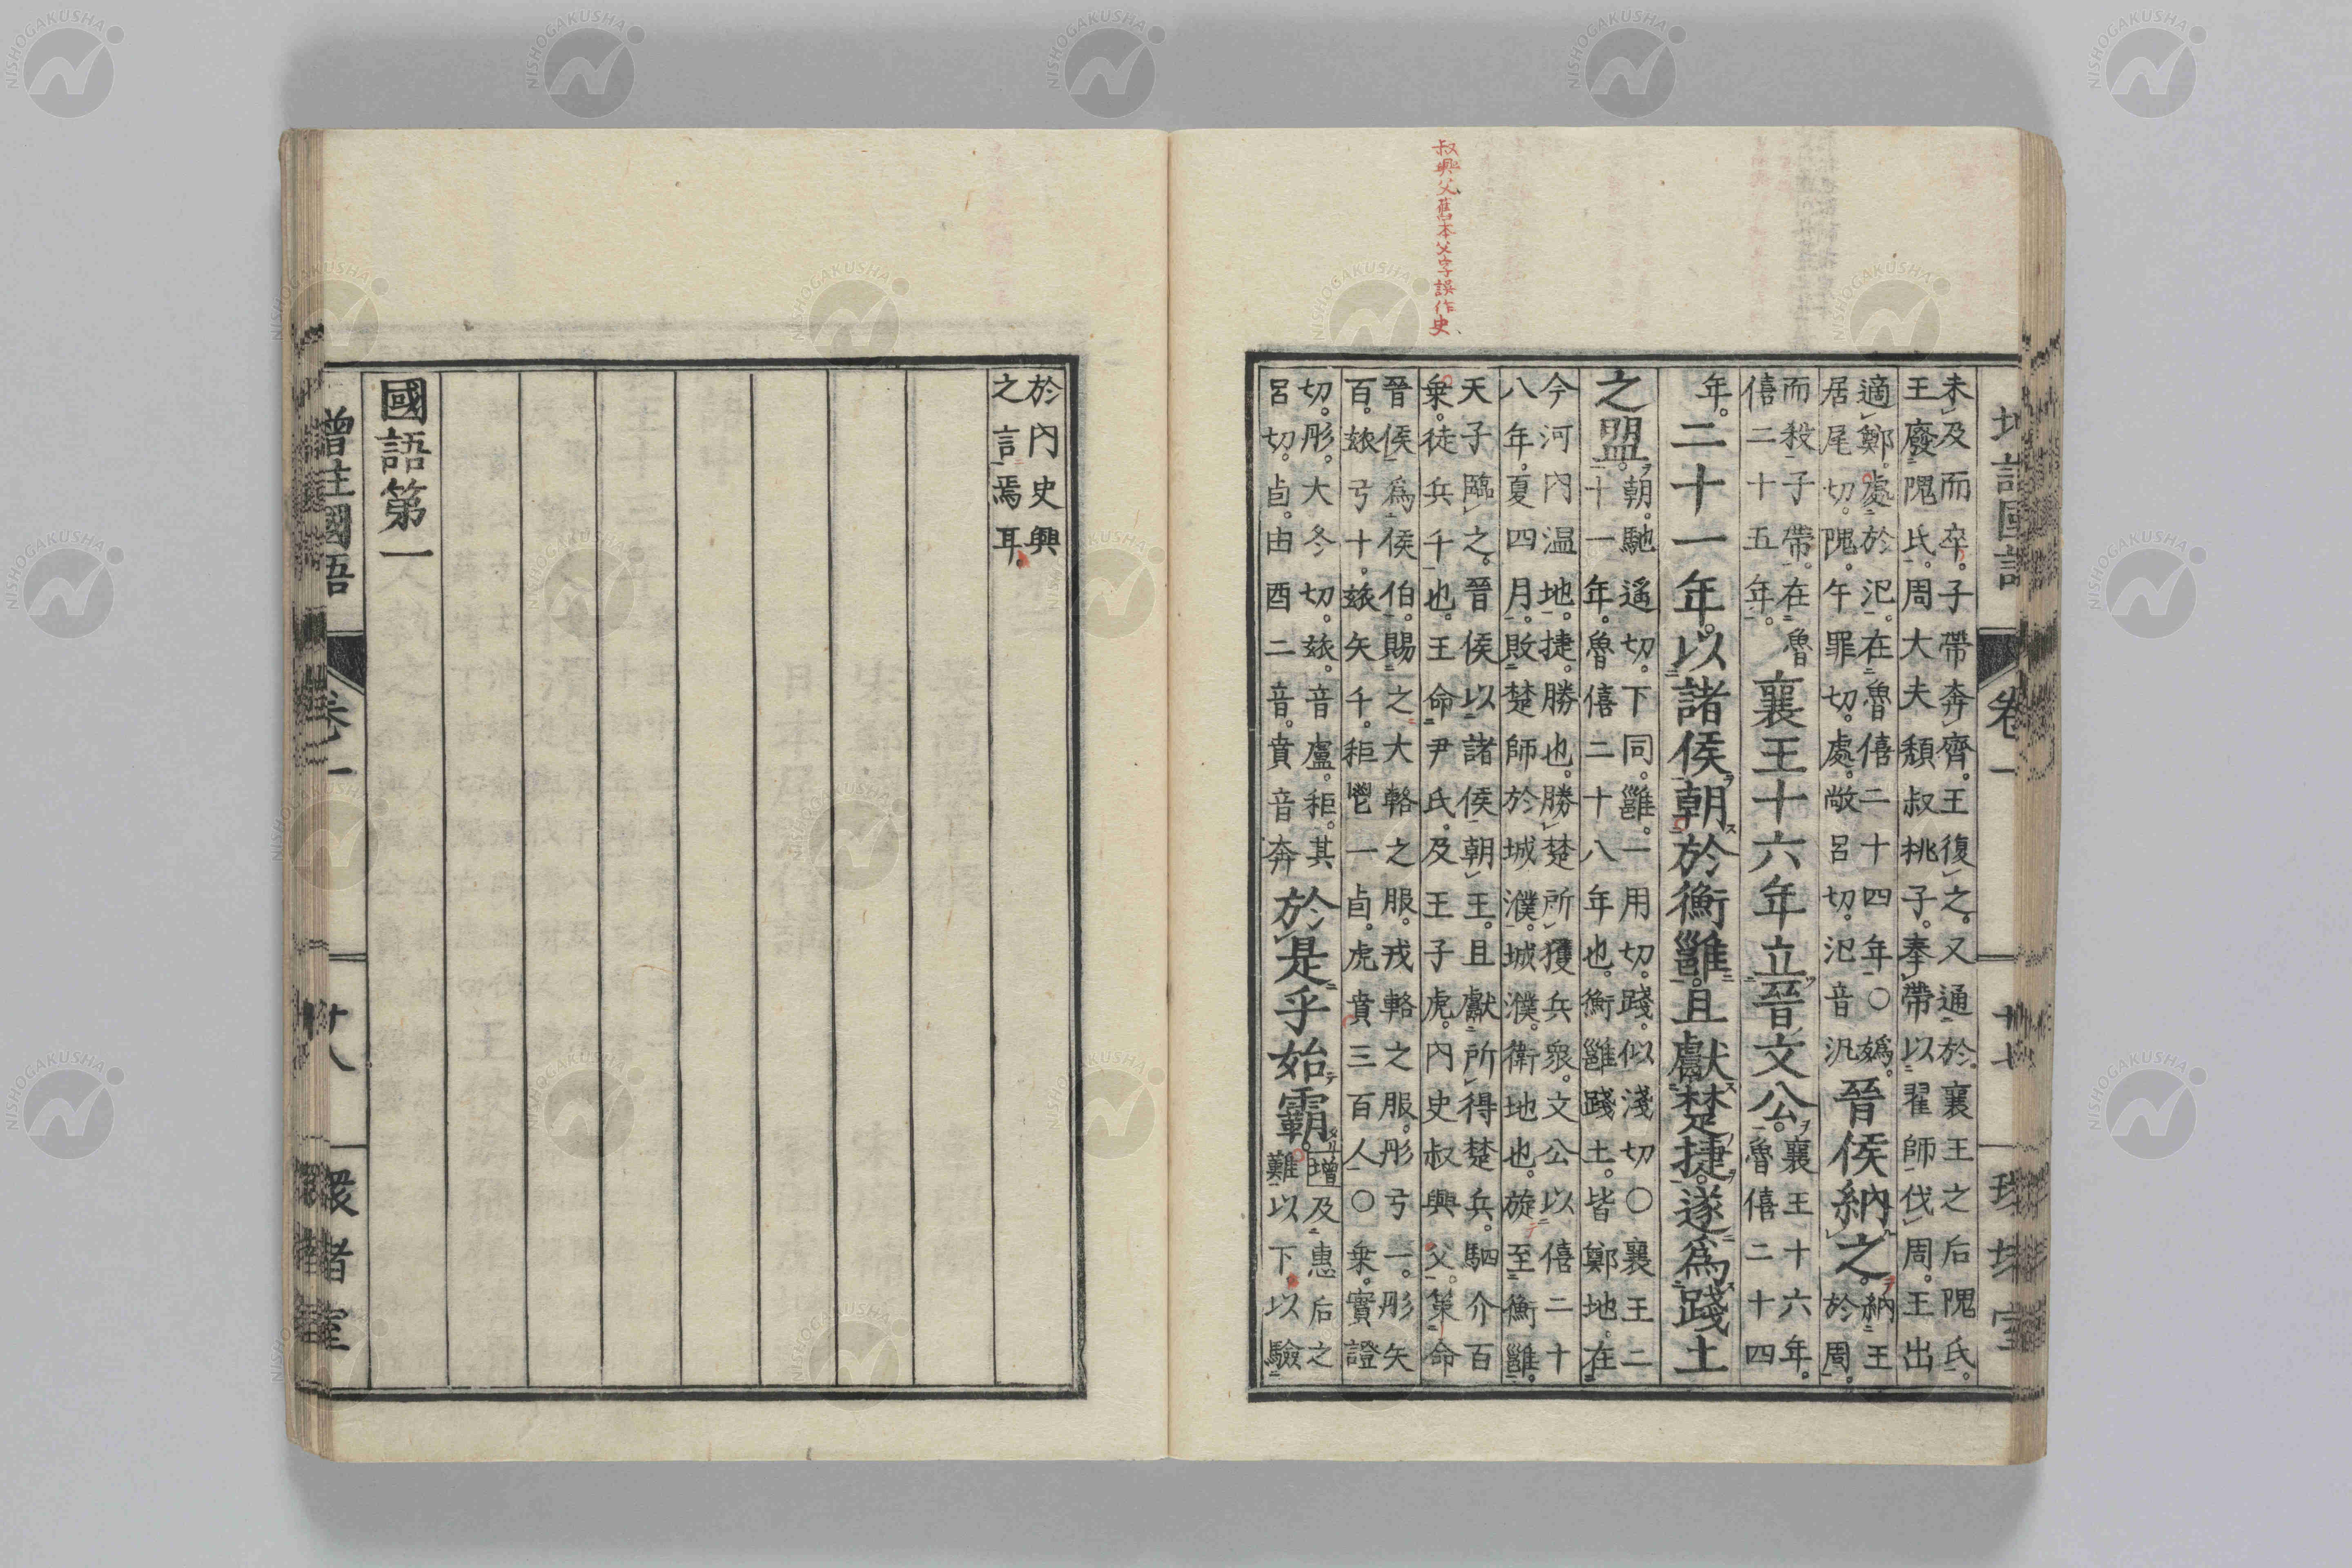 叔興父舊本父字誤作史
未及而卒。子帶奔齊。王復之。又通於襄王之后隗氏。
王廢隗氏。周大夫頹叔桃子。奉帶以翟師伐周。王出
適鄭。處於氾。在魯僖二十四年。○嬀。
居尾切。隗。午罪切。處。敞呂切。氾音汎。
晉侯納之。
納王
於周。
而殺子帶。在魯
僖二十五年。
襄王十六年立晉文公。
襄王十六年。
魯僖二十四
年。
二十一年。以諸侯朝於衡雝。且獻楚捷。遂爲踐土
之盟。
朝。馳遙切。下同。雝。一用切。踐。似淺切。○襄王二
十一年。魯僖二十八年也。衡雝踐土。皆鄭地。在
今河內温地。捷。勝也。勝楚所獲兵衆。文公以僖二十
八年。夏四月。敗楚師於城濮。城濮。衛地也。旋至衡雝。
天子臨之。晉侯以諸侯朝王。且獻所得楚兵。駟介百
乗。徒兵千也。王命尹氏。及王子虎。內史叔興父。策命
晉侯爲侯伯。賜之大輅之服。戎輅之服。彤弓一。彤矢
百。玈弓十。玈矢千。秬鬯一卣。虎賁三百人。○乗。實證
切。彤。大冬切。玈。音盧。秬。其
呂切。卣。由酉二音。賁音奔
於是乎始霸。
增及惠后之
難以下。以驗
於內史興
之言焉耳。
國語第一
增註國語 卷一 廿八